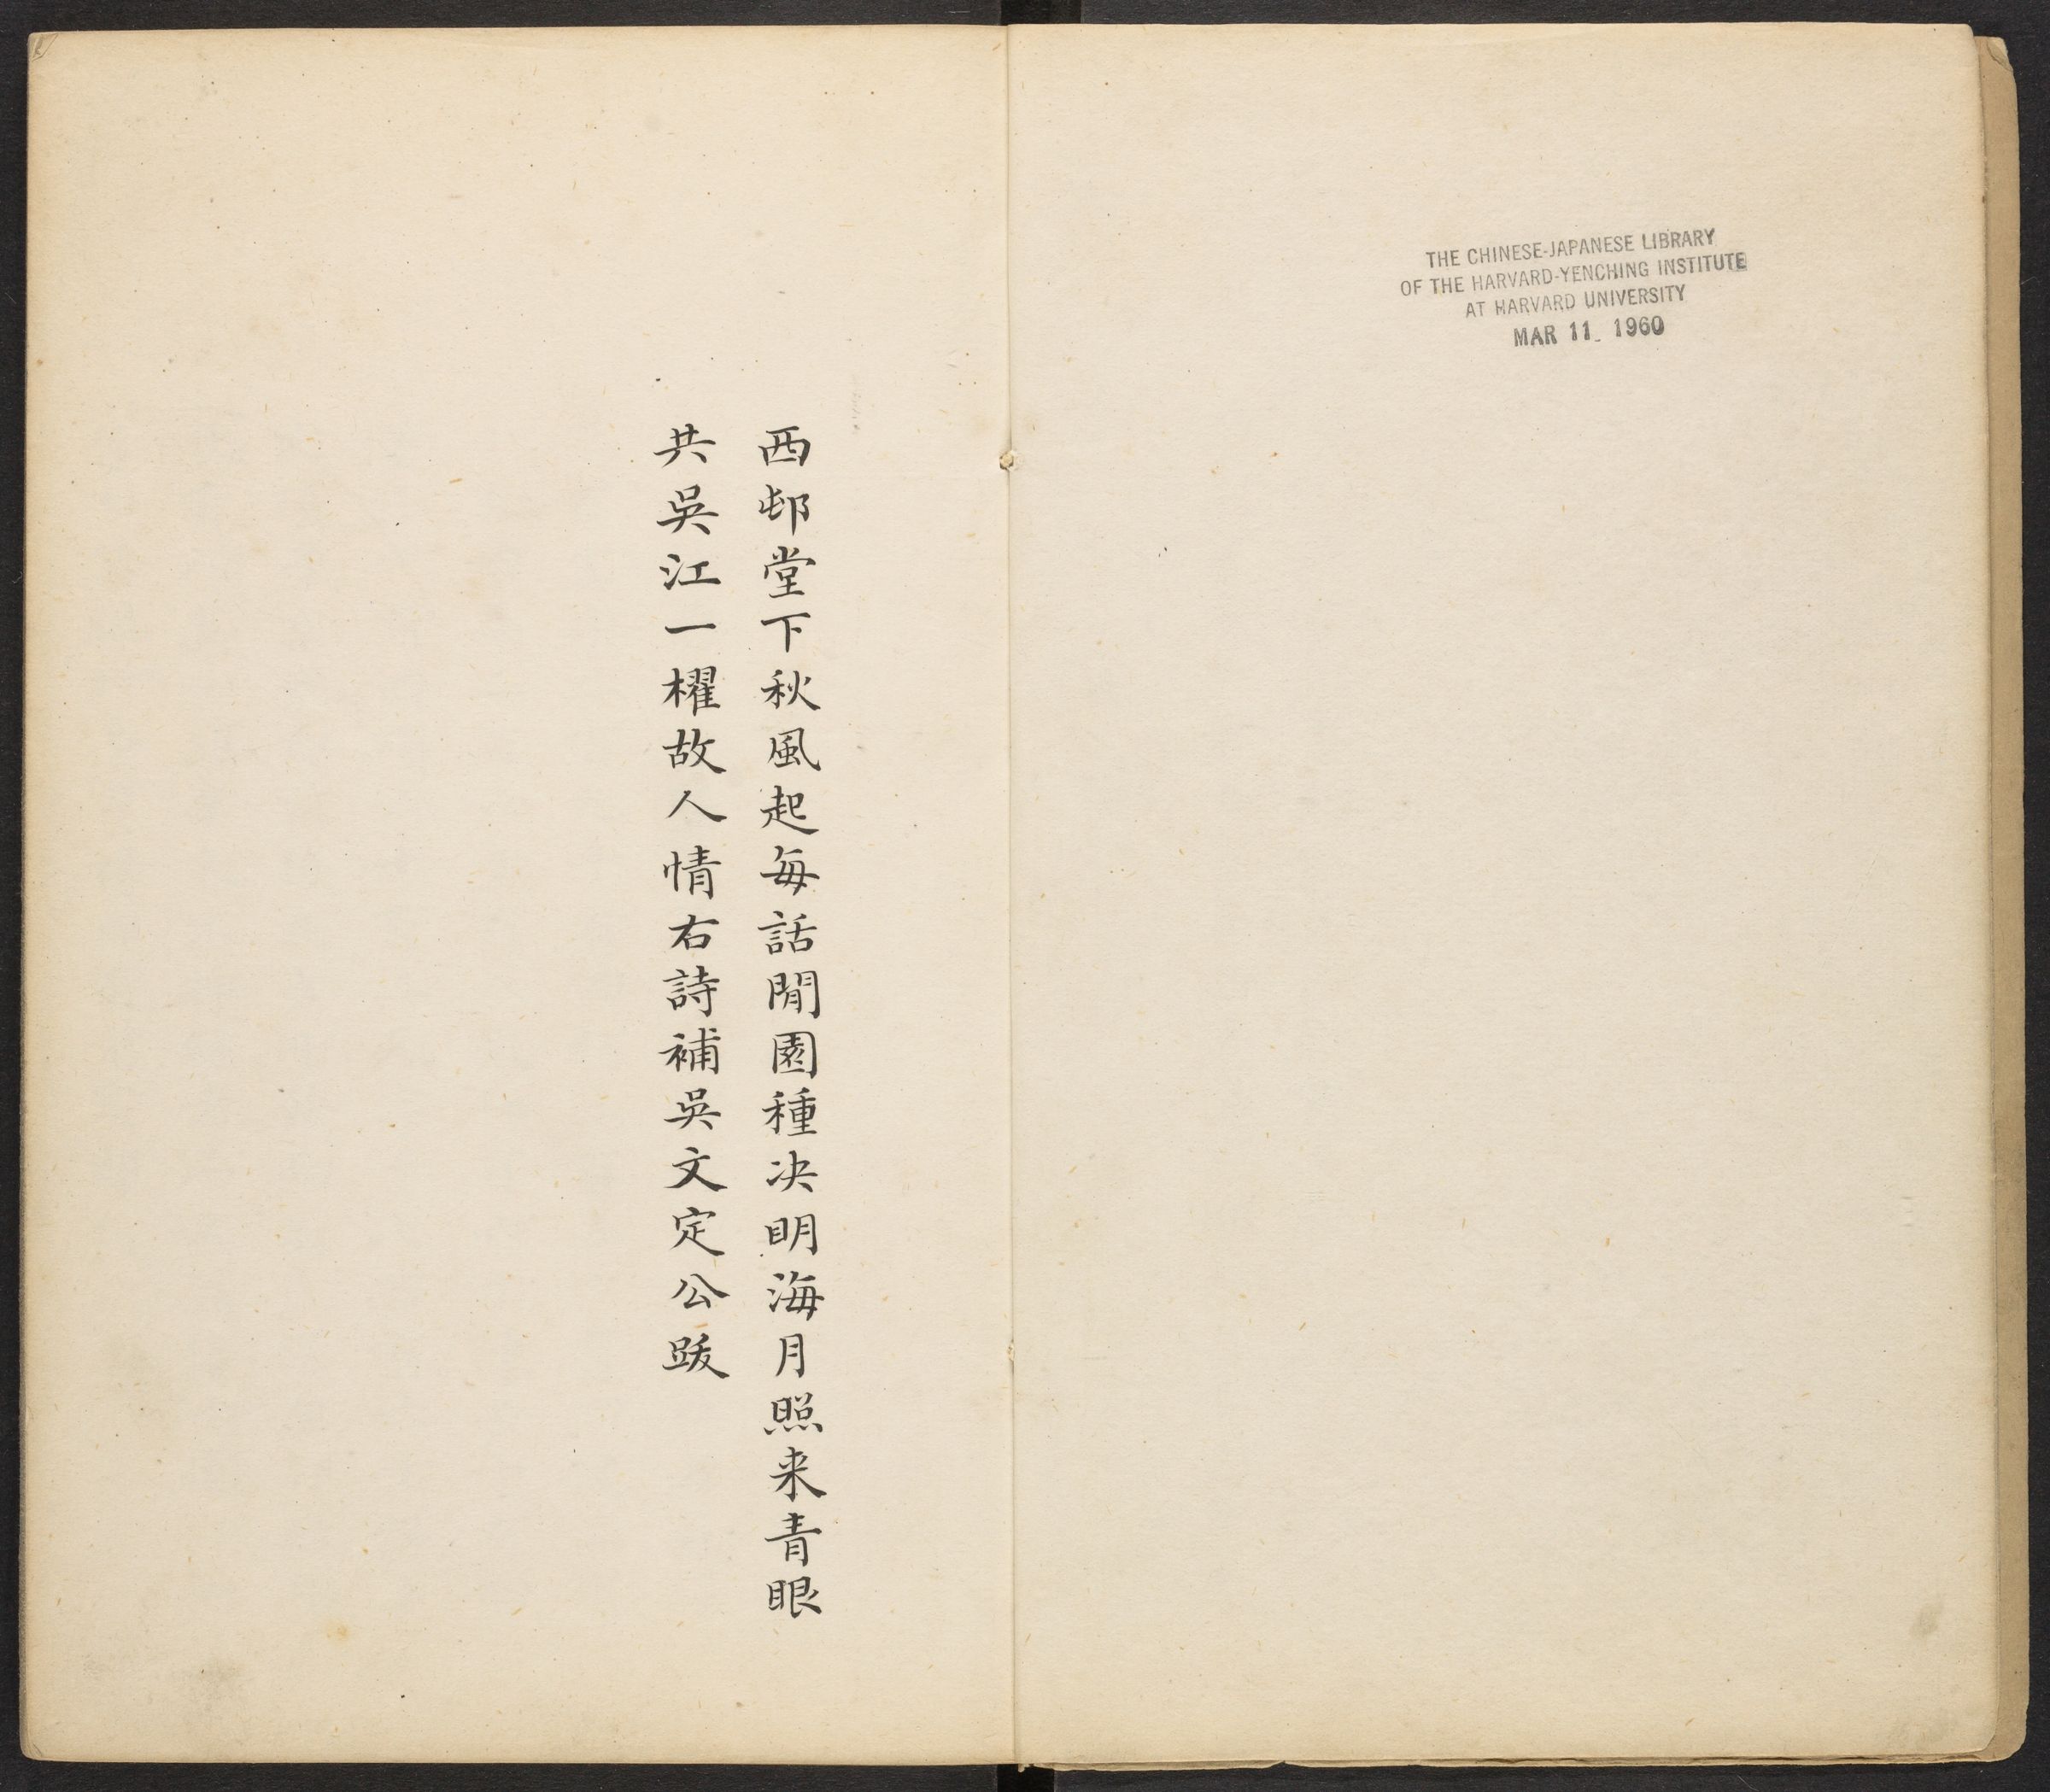 THE CHINESE-JAPANESE LIBRARY
OF THE HARVARD-YENCHING INSTITUTE
AT HARVARD UNIVERSITY
MAR 11 1960
西邨堂下秋風起每話閒園種决明海月照来青眼
共吳江一櫂故人情右詩補吳文定公跋